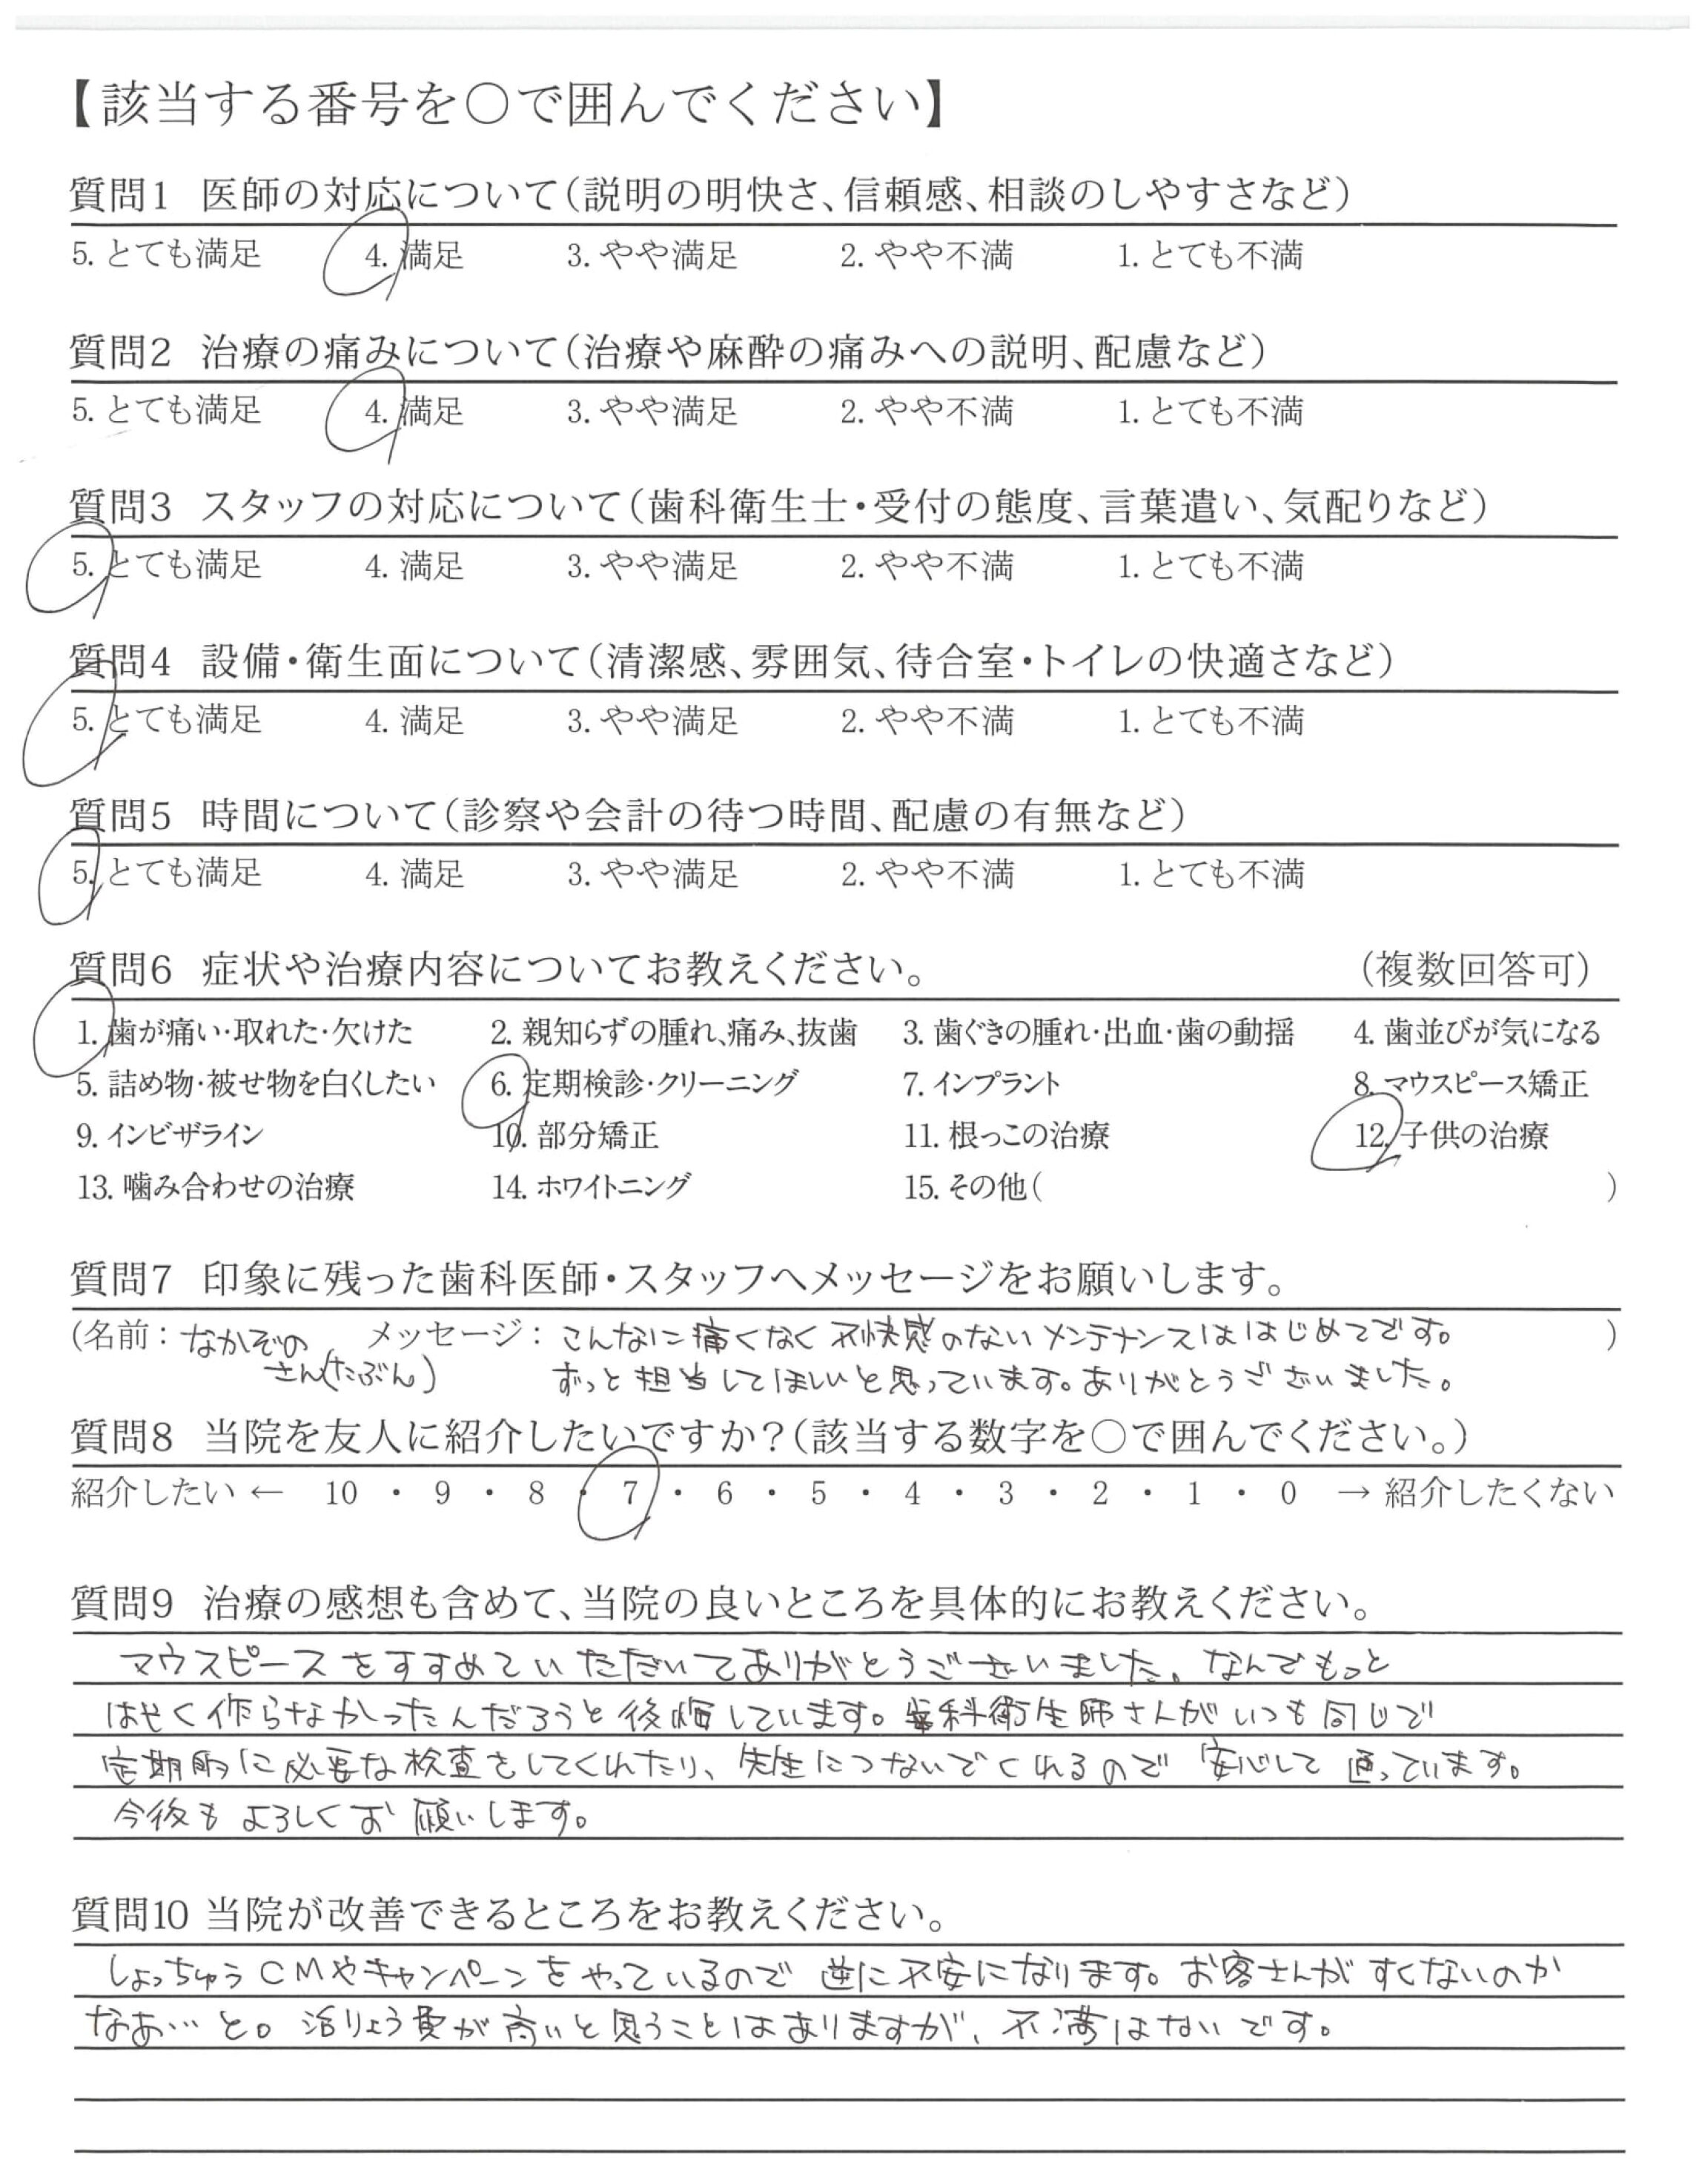 【該当する番号を○で囲んでください】
質問1 医師の対応について(説明の明快さ、信頼感、相談のしやすさなど)
5. とても満足 4. 満足 3. やや満足 2. やや不満 1. とても不満
質問2 治療の痛みについて(治療や麻酔の痛みへの説明、配慮など)
5. とても満足 4. 満足 3. やや満足 2. やや不満 1. とても不満
質問3 スタッフの対応について(歯科衛生士・受付の態度、言葉遣い、気配りなど)
5. とても満足 4. 満足 3. やや満足 2. やや不満 1. とても不満
質問4 設備・衛生面について(清潔感、雰囲気、待合室・トイレの快適さなど)
5. とても満足 4. 満足 3. やや満足 2. やや不満 1. とても不満
質問5 時間について(診察や会計の待つ時間、配慮の有無など)
5. とても満足 4. 満足 3. やや満足 2. やや不満 1. とても不満
質問6 症状や治療内容についてお教えください。 (複数回答可)
1. 歯が痛い・取れた・欠けた 2. 親知らずの腫れ、痛み、抜歯 3. 歯ぐきの腫れ・出血・歯の動揺 4. 歯並びが気になる
5. 詰め物・被せ物を白くしたい 6. 定期検診・クリーニング 7. インプラント 8. マウスピース矯正
9. インビザライン 10. 部分矯正 11. 根っこの治療 12. 子供の治療
13. 噛み合わせの治療 14. ホワイトニング 15. その他( )
質問7 印象に残った歯科医師・スタッフへメッセージをお願いします。
(名前: なかぞの メッセージ: こんなに痛くなく不快感のないメンテナンスははじめてです。 )
さん(たぶん) ずっと担当してほしいと思っています。ありがとうございました。
質問8 当院を友人に紹介したいですか?(該当する数字を○で囲んでください。)
紹介したい ← 10 ・ 9 ・ 8 ・ 7 ・ 6 ・ 5 ・ 4 ・ 3 ・ 2 ・ 1 ・ 0 → 紹介したくない
質問9 治療の感想も含めて、当院の良いところを具体的にお教えください。
マウスピースをすすめていただいてありがとうございました。なんでもっと
はやく作らなかったんだろうと後悔しています。歯科衛生師さんがいつも同じで
定期的に必要な検査をしてくれたり、先生につないでくれるので安心して通っています。
今後もよろしくお願いします。
質問10 当院が改善できるところをお教えください。
しょっちゅうCMやキャンペーンをやっているので逆に不安になります。お客さんがすくないのか
なあ…と。治りょう費が高いと思うことはありますが、不満はないです。